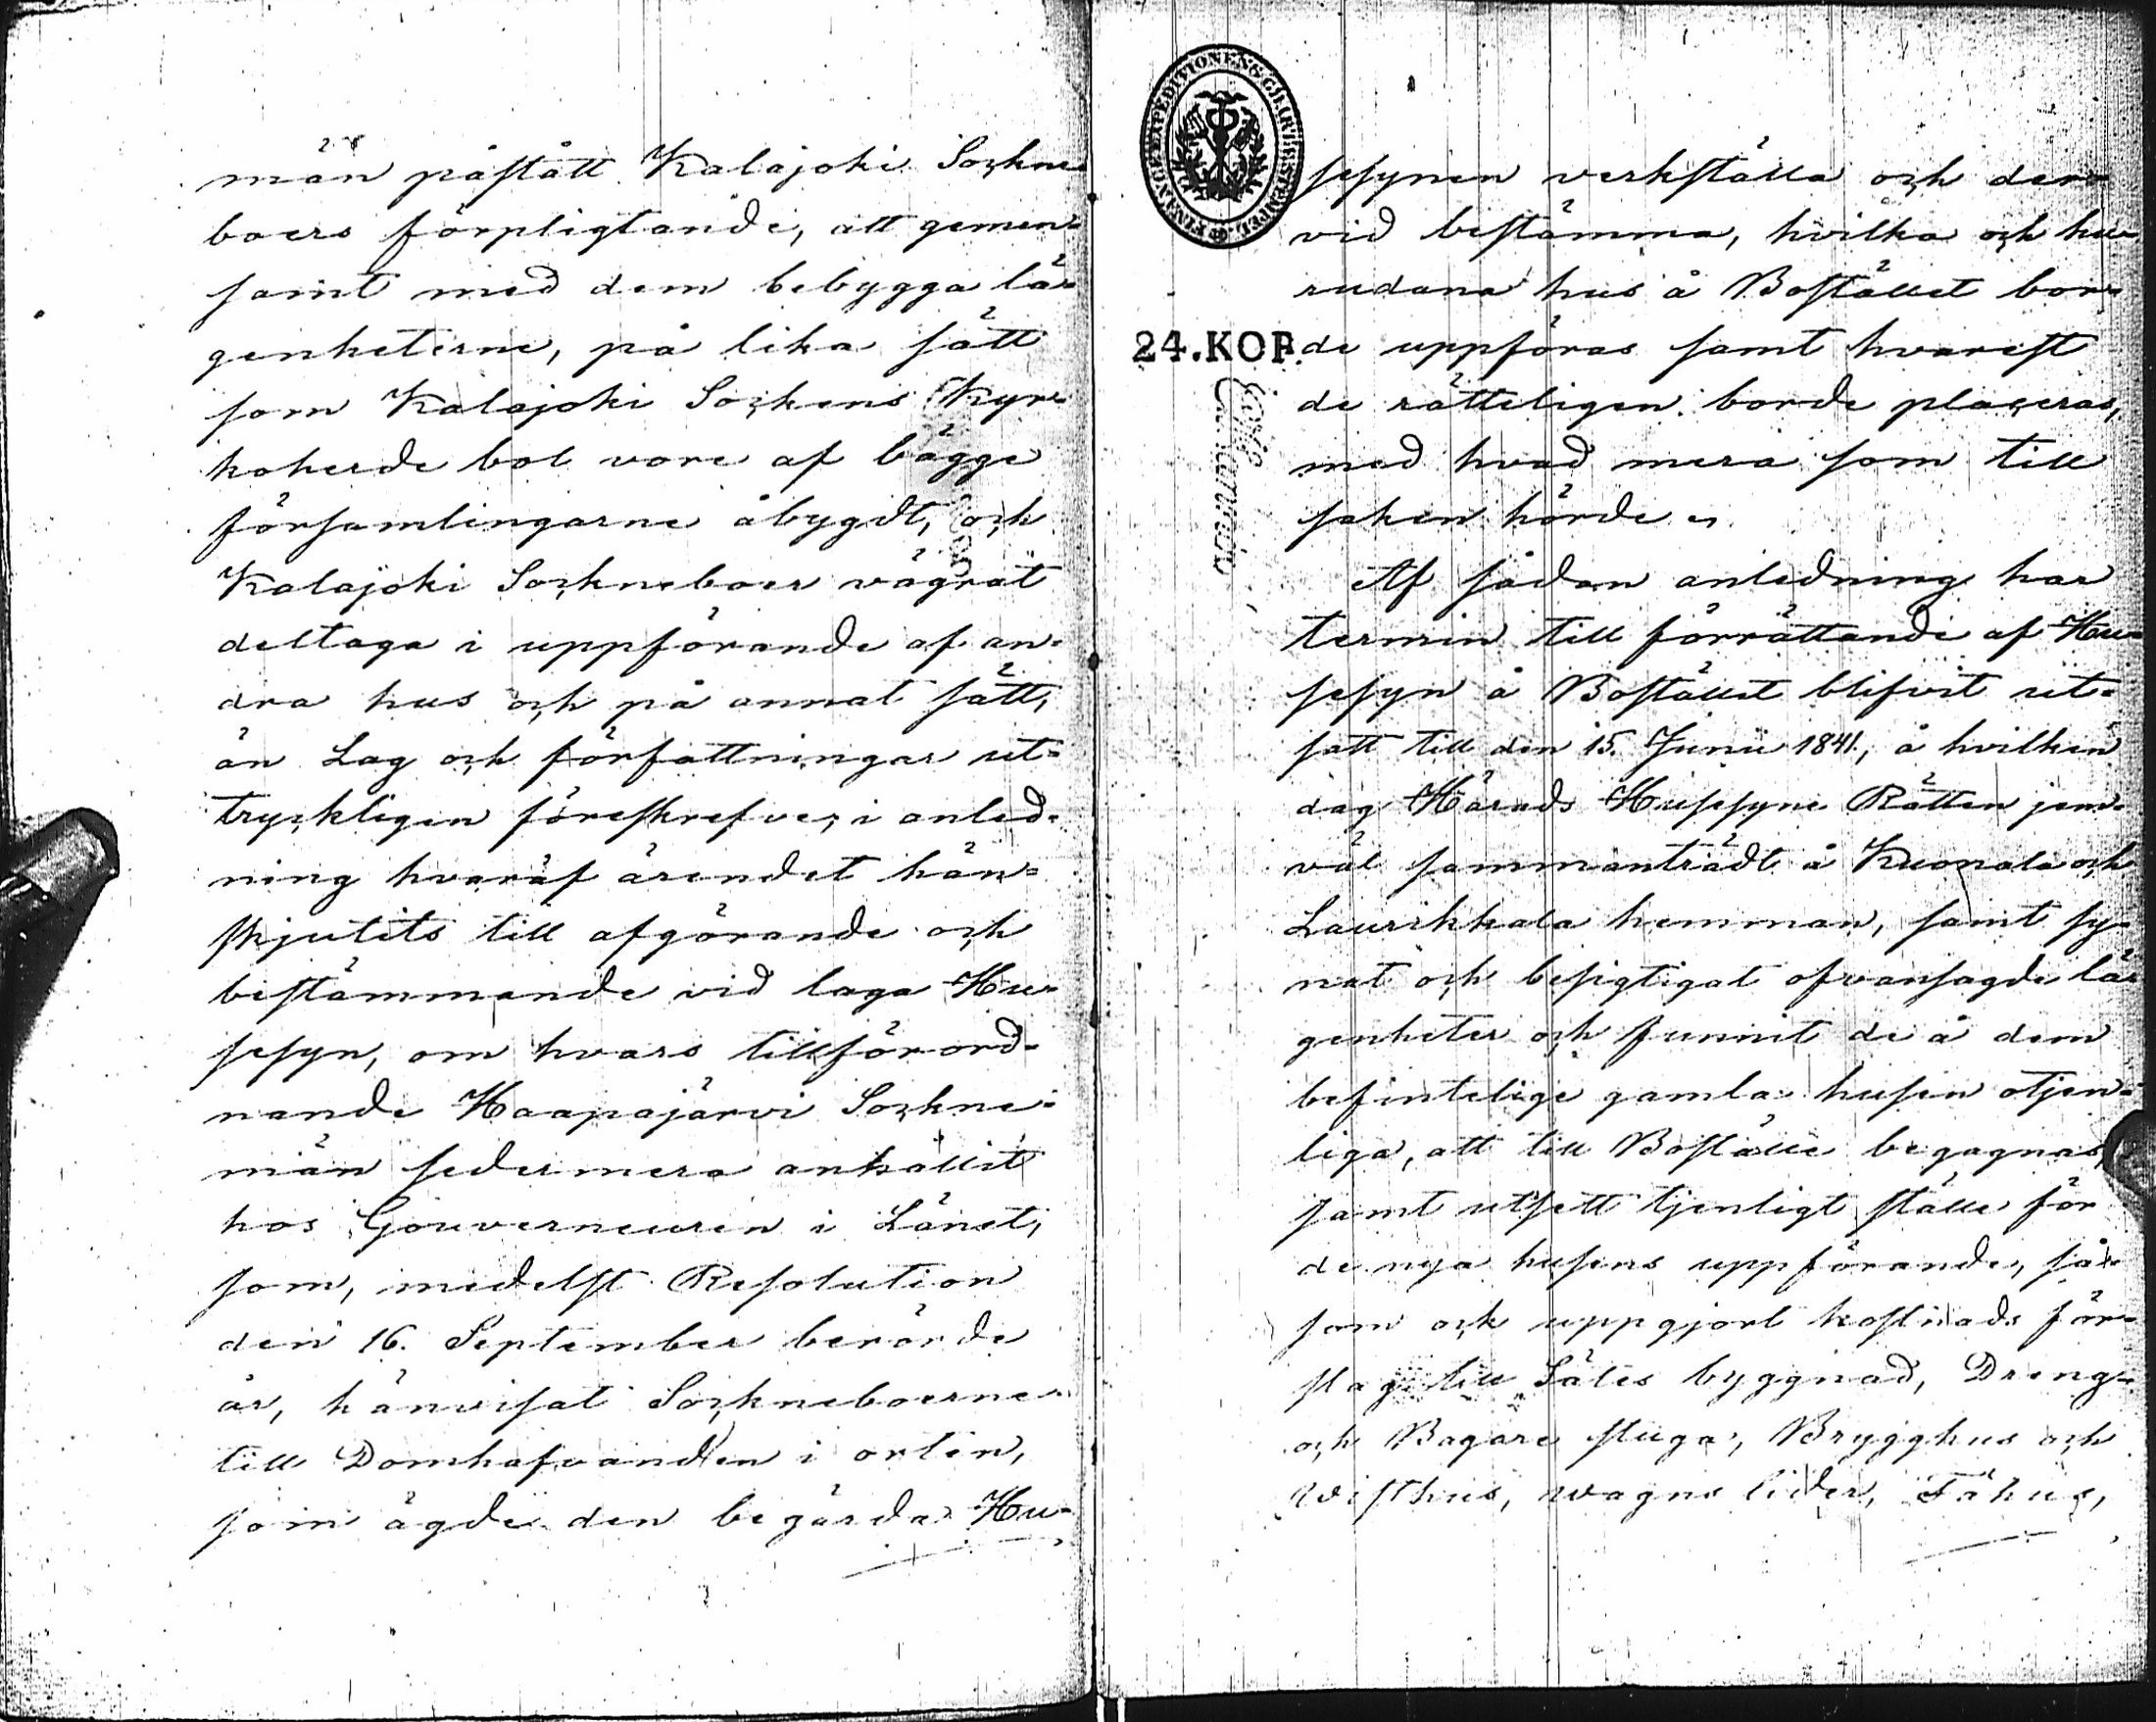 män påstått Kalajoki Sockne-
boers förpligtande, att gemen-
samt med dem bebygga lä-
genheterne, på lika sätt
som Kalajoki Sockens Kyr-
koherde bol vore af bägge
församlingarne åbygdt, och
Kalajoki Sockneboer vägrat
deltaga i uppförande af an-
dra hus och på annat sätt,
än Lag och författningar ut-
tryckligen föreskrefve, i anled-
ning hvaraf ärendet hän-
skjutits till afgörande och
bestämmande vid laga Hu-
sesyn, om hvars tillförord-
nande Haapajärvi Sockne-
män sedermera anhållit
hos Gouverneuren i Länet,
som, medelst Resolution
den 16. September berörde
år, hänvisat Sockneboerne
till Domhafvanden i orten,
som ägde den begärda Hu-
FINANCE EXPEDITIONENS
sesynen verkställa och der-
vid bestämma, hvilka och hu-
rudana hus å Bostället bor-
24.KOP. de uppföras samt hvarest
de rätteligen borde placeras,
med hvad mera som till
saken hörde.
Af sådan anledning har
termin till förrättande af Hu-
sesyn å Bostället blifvit ut-
satt till den 15. Junii 1841, å hvilken
dag Härads Husesyns Rätten jem-
väl sammanträdt å Kuonala och
Laurikkala hemman, samt sy-
nat och besigtigat ofvansagde lä-
genheter och funnit de å dem
befintelige gamla husen otjen-
liga, att till Boställe begagnas,
samt utsett tjenligt ställe för
de nya husens uppförande, så-
som och uppgjort kostnads för-
slag till Sätes byggnad, Dreng-
och Bagare stuga, Brygghus och
Visthus, wagns lider, Fähus,